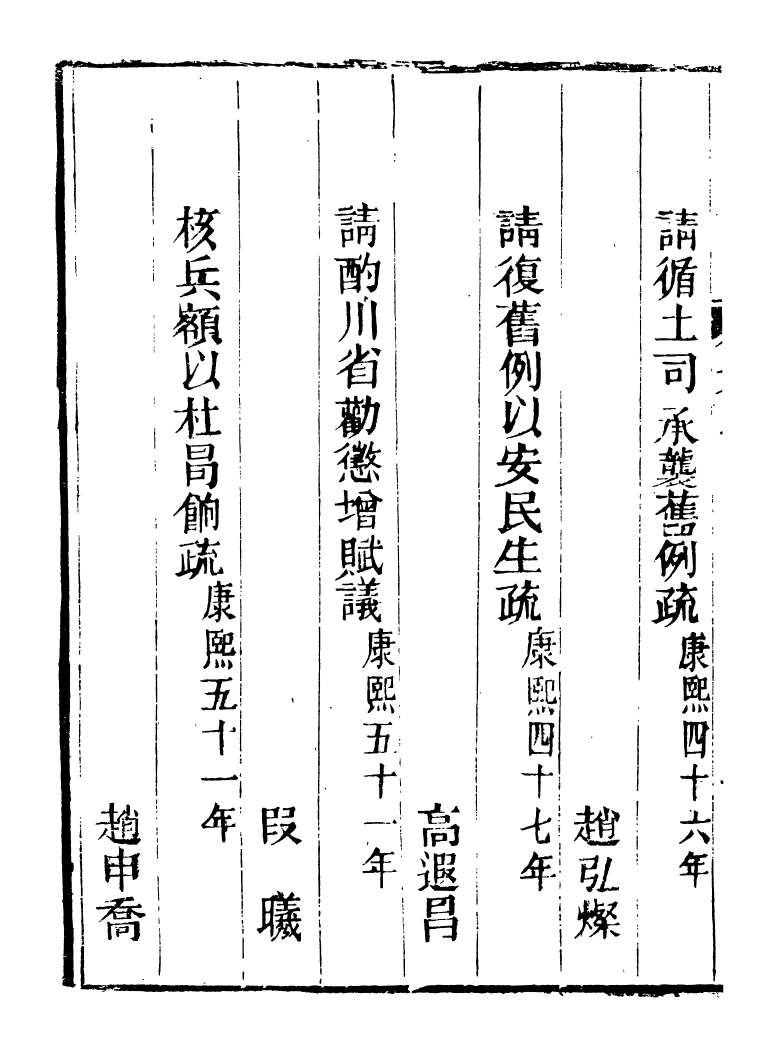 請循土司承襲舊例疏康熙四十六年
趙弘燦
請復舊例以安民生疏康熙四十七年
高遐昌
請酌川省勸懲增賦議康熙五十一年
段曦
核兵額以杜冒餉疏康熙五十一年
趙申喬